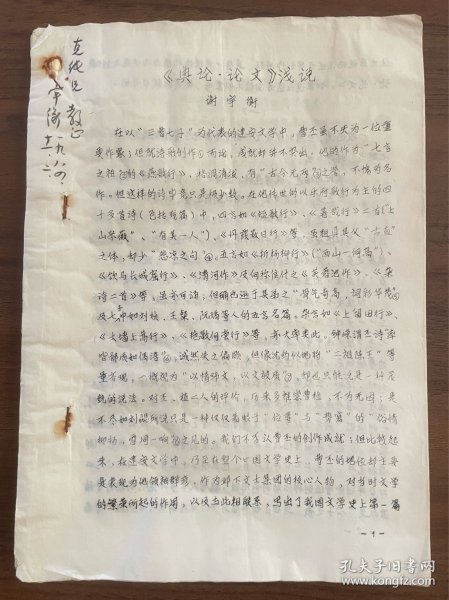 克純兄教正
宇衡
《典论·论文》浅说
谢宇衡
在以“三曹七子”为代表的建安文学中，曹丕虽不失为一位重
要作家；但就诗歌创作①而论，成就却并不突出。他的作为“七言
之祖”的《燕歌行》，格调清浚，有“古今无两”之誉，不愧为名
作。但这样的诗毕竟只是极少数。在他传世的以乐府歌行为主的四
十多首诗（包括残篇）中，四言如《短歌行》、《善哉行》二首（“上
山采薇”、“有美一人”）、《丹霞蔽日行》等，虽祖其父“古直”
之体，却少“悲凉之句”。五言如《折杨柳行》（“西山一何高”）、
《饮马长城窟行》、《清河作》及何
诗二首》等，虽亦可诵，但确已逊于其弟之“骨气奇高，词彩华茂”
及七子中如刘桢、王粲、阮瑀等人的五言名篇。杂言如《上留田行》、
《大墙上蒿行》、《艳歌何尝行》等，亦大率类此。钟嵘谓丕诗“率
皆鄙质如偶语”，诚然失之偏颇，但像沈约以他终“二祖陈王”等
量齐观，一概视为“以情纬文，以文被质”，却也只能说是一种笼
统的说法。对丕、植二人的评价，历来多推誉曹植，不为无因；是
不尽如刘勰所说只是一种仅仅着眼于“位尊”与“势窘”的“俗情
抑扬，雷同一响”之见的。我们不否认曹丕的创作成就；但比较起
来，在建安文学中，乃至在整个中国文学史上，曹丕的地位却主要
是表现为他领袖群彦，作为邺下文士集团的核心人物，对当时文学
的繁荣所起的作用，以及与此相联系，写出了我国文学史上第一篇
-1-
孔夫子旧书网
kongfz.com